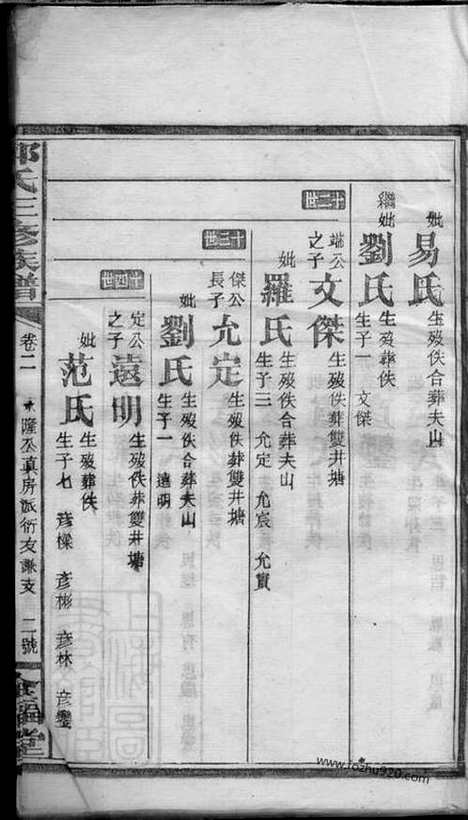 妣易氏 生歿佚合葬夫山
繼妣劉氏 生歿葬佚
生子一 文傑
十二世
端公之子文傑 生歿佚葬雙井塘
妣羅氏 生歿佚合葬夫山
生子三 允定 允宸 允賓
十三世
傑公長子允定 生歿佚葬雙井塘
妣劉氏 生歿佚合葬夫山
生子一 遠明
十四世
定公之子遠明 生歿佚葬雙井塘
妣范氏 生歿葬佚
生子七 彥樑 彥彬 彥林 彥鑾
氏三修族譜 卷二 隆公真房派衍友謙支 二號
堂
www.fozhu920.com